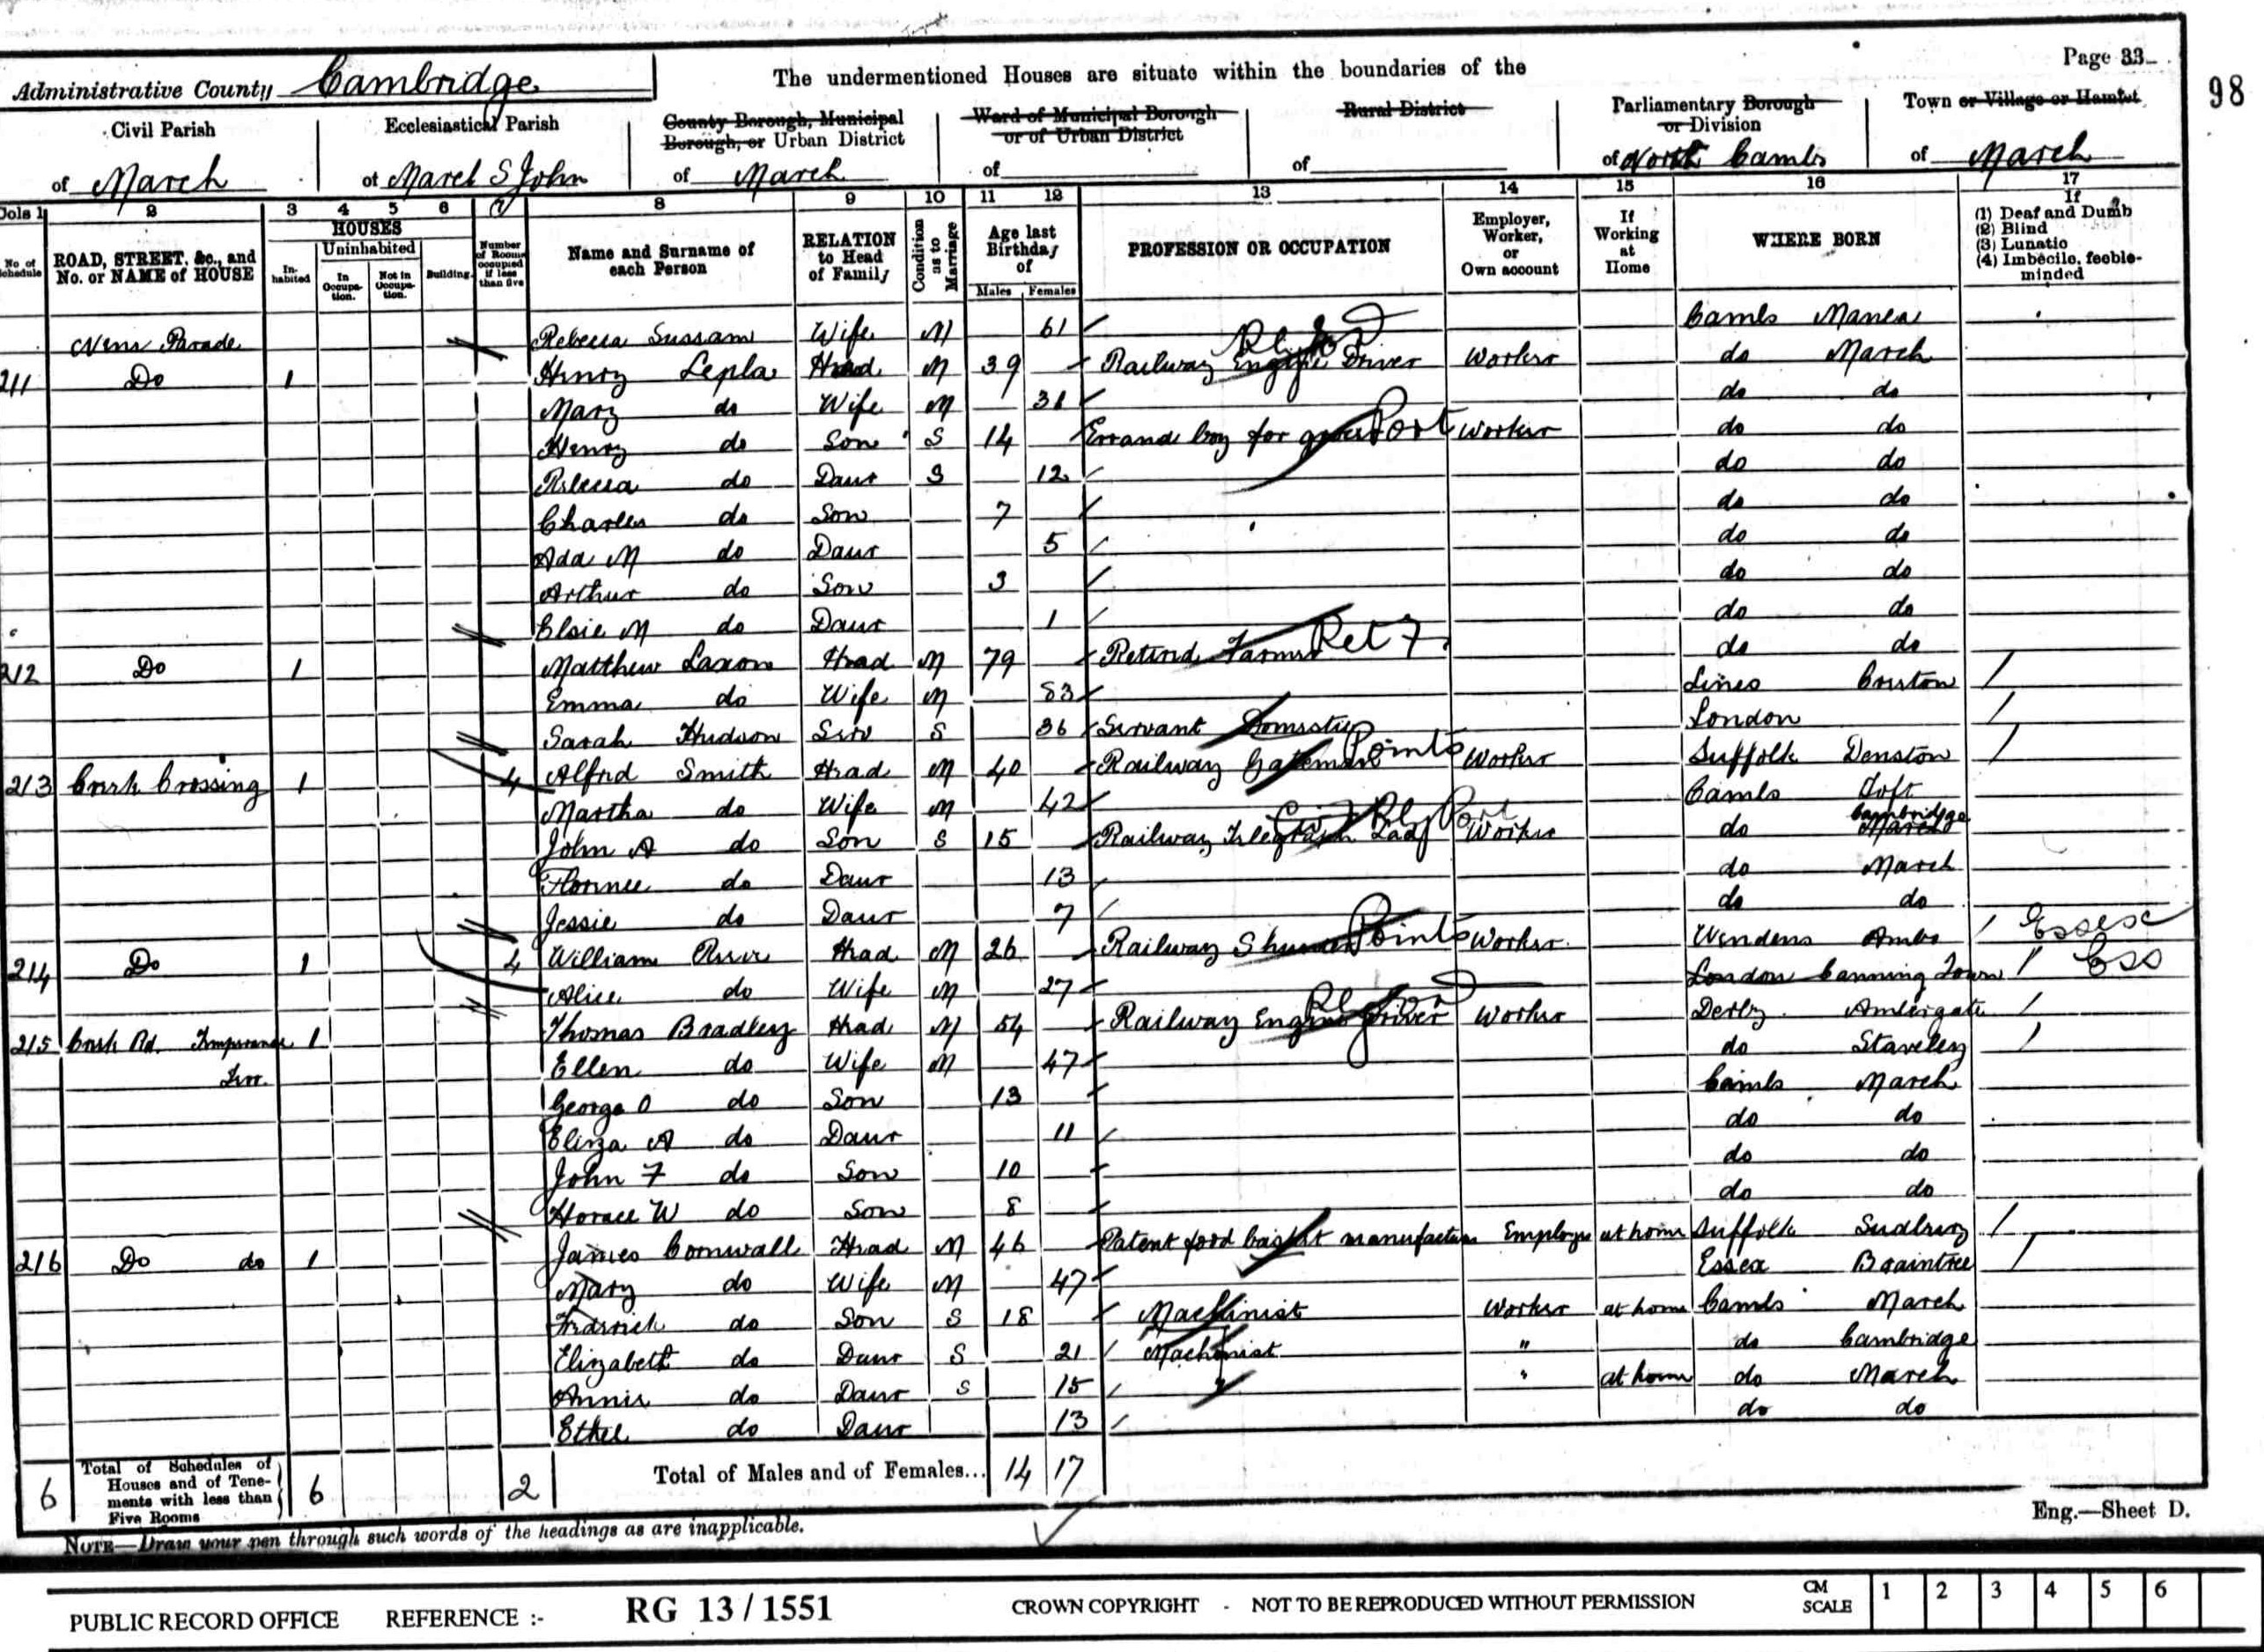 Page 33
98
Administrative County Cambridge
The undermentioned Houses are situate within the boundaries of the
Civil Parish
of March
Ecclesiastical Parish
of March S John
County Borough, Municipal Borough, or Urban District
of March
Ward of Municipal Borough or of Urban District
of
Rural District
of
Parliamentary Borough or Division
of North Cambs
Town or Village or Hamlet
of March
Cols 1 2 3 4 5 6 7 8 9 10 11 12 13 14 15 16 17
No of Schedule
ROAD, STREET, &c., and No. or NAME of HOUSE
HOUSES
Inhabited
Uninhabited
In Occupation.
Not in Occupation.
Building.
Number of Rooms occupied if less than five
Name and Surname of each Person
RELATION to Head of Family
Condition as to Marriage
Age last Birthday of
Males Females
PROFESSION OR OCCUPATION
Employer, Worker, or Own account
If Working at Home
WHERE BORN
If
(1) Deaf and Dumb
(2) Blind
(3) Lunatic
(4) Imbecile, feeble-minded
Nene Parade Rebecca Sussam Wife M 61 Cambs Manea
211 Do 1 Henry Lepla Head M 39 Railway Engine Driver Worker do March
Mary do Wife M 38 do do
Henry do Son S 14 Errand boy for grocer Port Worker do do
Rebecca do Daur S 12 do do
Charles do Son 7 do do
Ada M do Daur 5 do do
Arthur do Son 3 do do
Elsie M do Daur 1 do do
212 Do 1 Matthew Laxon Head M 79 Retired Farmer Ret F do do
Emma do Wife M 83 Lincs
Sarah Hudson Serv S 36 Servant Domestic London
213 Creek Crossing 1 4 Alfred Smith Head M 40 Railway Gateman Points Worker Suffolk Denston
Martha do Wife M 42 Cambs Toft
John A do Son S 15 Railway Telegraph Lad Worker do March Cambridge
Florence do Daur 13 do March
Jessie do Daur 7 do do
214 Do 1 4 William Head M 26 Railway Shunter Points Worker Wendens Ambo Essex
Alice do Wife M 27 London Canning Town Ess
215 Creek Rd. Temperance Terr. 1 Thomas Bradley Head M 54 Railway Engine Driver Worker Derby Ambergate
Ellen do Wife M 47 do Staveley
George O do Son 13 Cambs March
Eliza A do Daur 11 do do
John F do Son 10 do do
Horace W do Son 8 do do
216 Do do 1 James Cornwall Head M 46 Patent food basket manufacturer Employer at home Suffolk Sudbury
Mary do Wife M 47 Essex Braintree
Fredrick do Son S 18 Machinist Worker at home Cambs March
Elizabeth do Daur S 21 Machinist " do Cambridge
Annie do Daur S 15 " at home do March
Ethel do Daur 13 do do
6 Total of Schedules of Houses and of Tenements with less than Five Rooms 6 2 Total of Males and of Females... 14 17
NOTE—Draw your pen through such words of the headings as are inapplicable.
Eng.—Sheet D.
PUBLIC RECORD OFFICE REFERENCE :- RG 13 / 1551 CROWN COPYRIGHT - NOT TO BE REPRODUCED WITHOUT PERMISSION CM SCALE 1 2 3 4 5 6